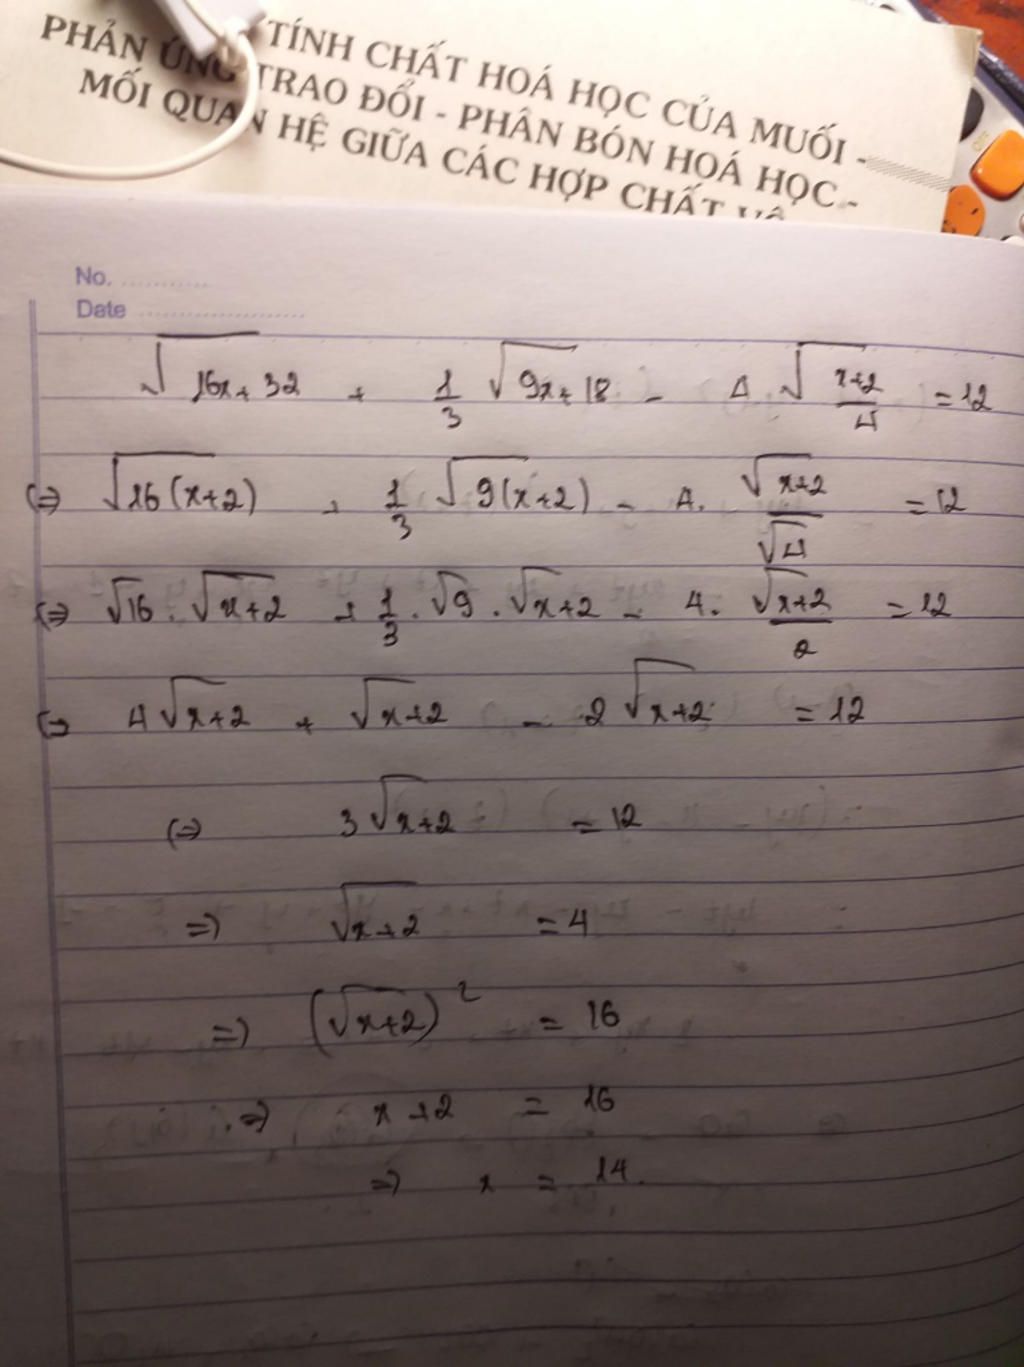 TÍNH CHẤT HOÁ HỌC CỦA MUỐI -
PHẢN ỨNG TRAO ĐỔI - PHÂN BÓN HOÁ HỌC -
MỐI QUAN HỆ GIỮA CÁC HỢP CHẤT VÔ
OFF
No. ...........
Date ......................
√(16x+32) + 1/3 √(9x+18) - 4 √((x+2)/4) = 12
(=> √(16(x+2)) + 1/3 √(9(x+2)) - 4. √(x+2)/√4 = 12
(=> √16 . √(x+2) + 1/3 . √9 . √(x+2) - 4. √(x+2)/2 = 12
(=> 4√(x+2) + √(x+2) - 2√(x+2) = 12
(=> 3√(x+2) = 12
=> √(x+2) = 4
=> (√(x+2))² = 16
=> x+2 = 16
=> x = 14.